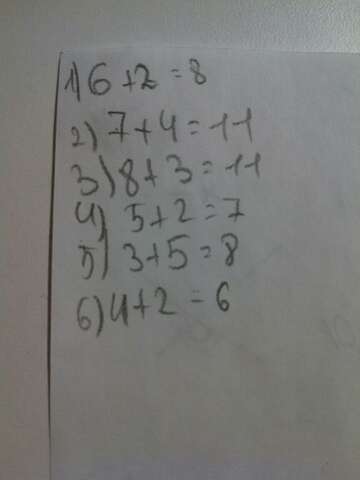 1) 6+2=8
2) 7+4=11
3) 8+3=11
4) 5+2=7
5) 3+5=8
6) 4+2=6